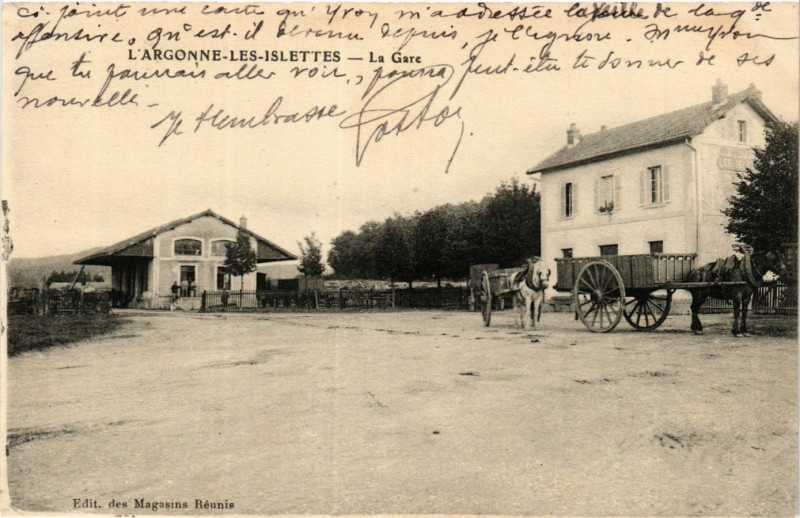 ci-joint une carte qu'Yvon m'a adressée la veille de la gde
offensive, qu'est-il devenu depuis, je l'ignore. Mme Yvon
L'ARGONNE-LES-ISLETTES — La Gare
que tu pourrais aller voir, pourra peut-être te donner de ses
nouvelles -
Je t'embrasse
Edit. des Magasins Réunis